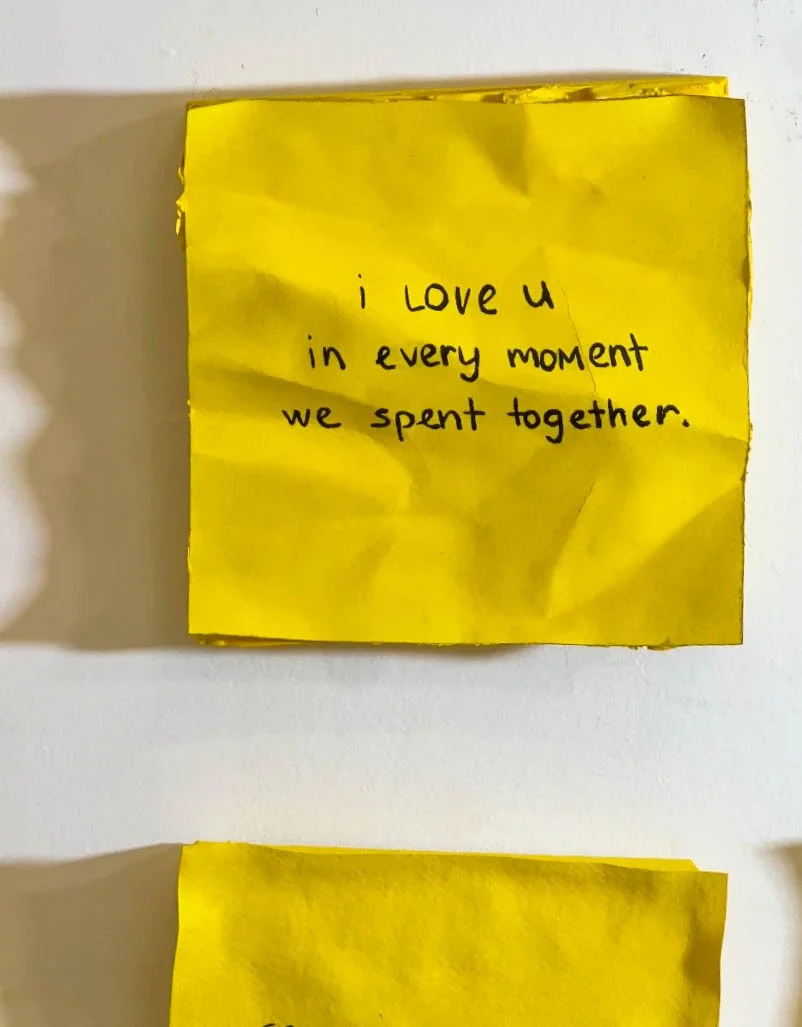 i Love u
in every moment
we spent together.